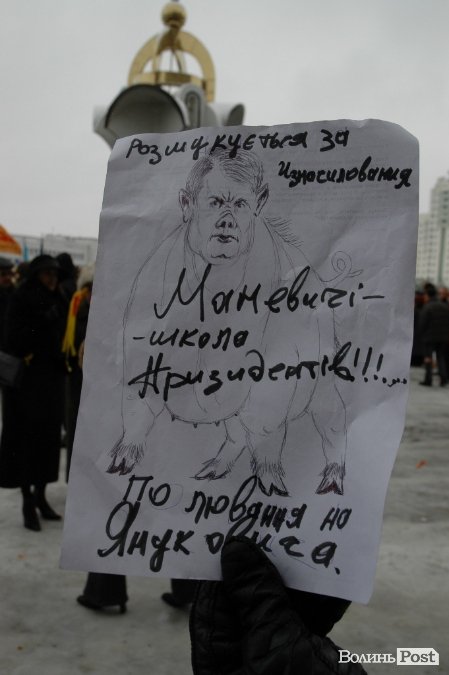 Розшукується за
изнасилования
Маневичі-
-школа
призидентів!!!...
Полювання на
Януковича.
ВолиньPost